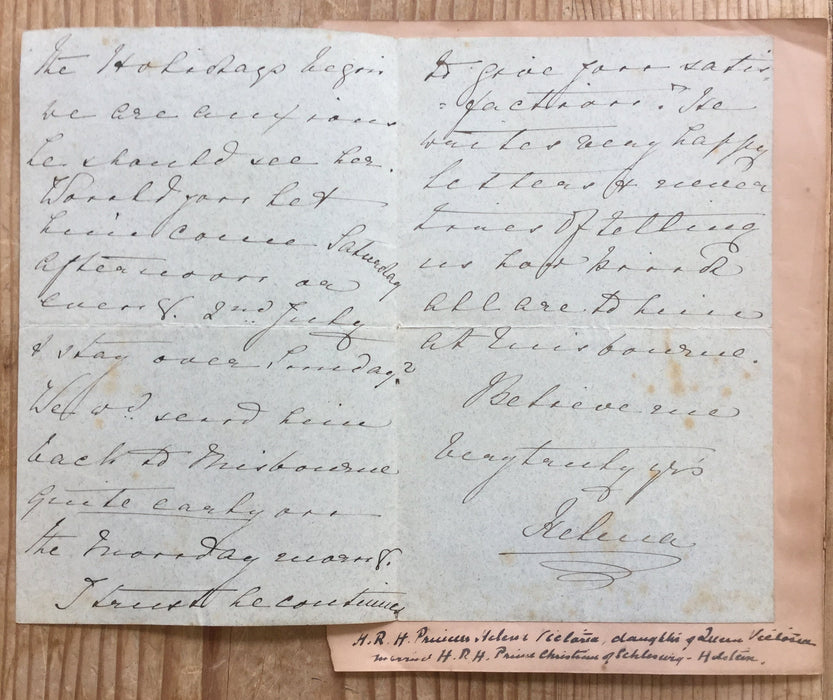 the Holidays begin
we are anxious
he should see her.
Would you let
him come Saturday
afternoon or
eveng. 2nd July
& stay over Sunday?
We wd. send him
back to Misbourne
quite early on
the Monday morng.
I trust he continues
to give you satis-
=faction? He
writes very happy
letters & never
tires of telling
us how kind
all are to him
at Misbourne.
Believe me
very truly yrs
Helena
H.R.H. Princess Helena Victoria, daughter of Queen Victoria
married H.R.H. Prince Christian of Schleswig-Holstein.